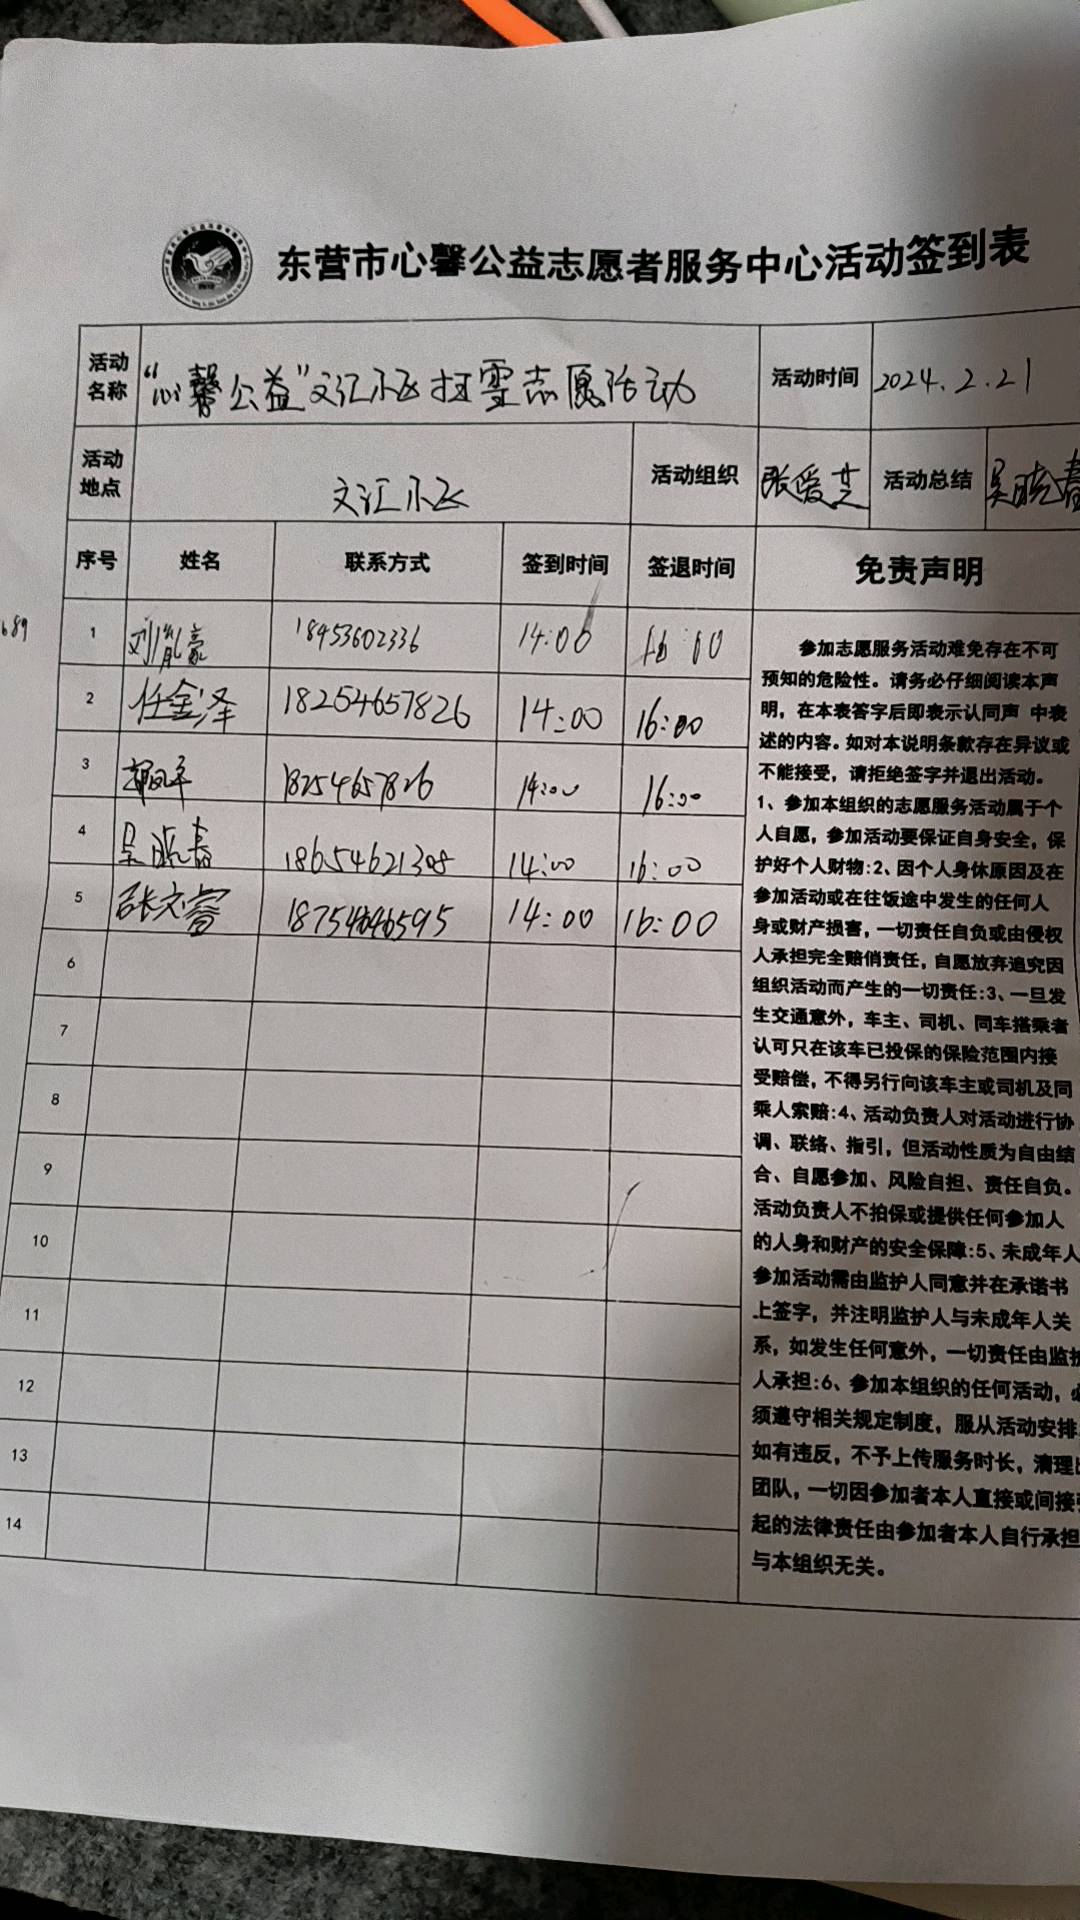 东营市心馨公益志愿者服务中心活动签到表
活动名称 “心馨公益”文汇小飞扫雪志愿活动 活动时间 2024.2.21
活动地点 文汇小飞 活动组织 张爱芝 活动总结 吴晓春
序号 姓名 联系方式 签到时间 签退时间 免责声明
689
1 刘胤豪 18453602336 14:00 16:00
2 任金泽 18254657826 14:00 16:00
3 18254657826 14:00 16:00
4 吴晓春 18654621308 14:00 16:00
5 张文睿 18754646595 14:00 16:00
6
7
8
9
10
11
12
13
14
参加志愿服务活动难免存在不可
预知的危险性。请务必仔细阅读本声
明，在本表答字后即表示认同声 中表
述的内容。如对本说明条款存在异议或
不能接受，请拒绝签字并退出活动。
1、参加本组织的志愿服务活动属于个
人自愿，参加活动要保证自身安全，保
护好个人财物:2、因个人身休原因及在
参加活动或在往饭途中发生的任何人
身或财产损害，一切责任自负或由侵权
人承担完全赔俏责任，自愿放弃追究因
组织活动而产生的一切责任:3、一旦发
生交通意外，车主、司机、同车搭乘者
认可只在该车已投保的保险范围内接
受赔偿，不得另行向该车主或司机及同
乘人索赔:4、活动负责人对活动进行协
调、联络、指引，但活动性质为自由结
合、自愿参加、风险自担、责任自负。
活动负责人不拍保或提供任何参加人
的人身和财产的安全保障:5、未成年人
参加活动需由监护人同意并在承诺书
上签字，并注明监护人与未成年人关
系，如发生任何意外，一切责任由监护
人承担:6、参加本组织的任何活动，必
须遵守相关规定制度，服从活动安排
如有违反，不予上传服务时长，清理出
团队，一切因参加者本人直接或间接引
起的法律责任由参加者本人自行承担
与本组织无关。